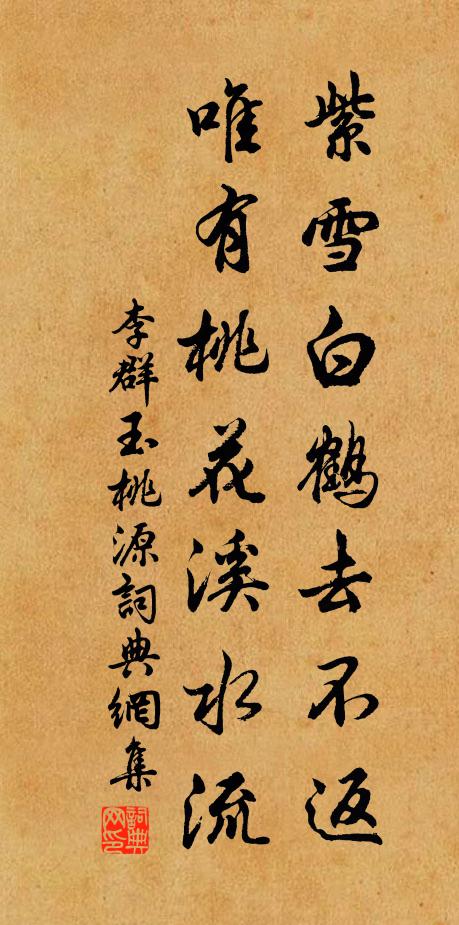 紫雪白鶴去不返
唯有桃花溪水流
李群玉桃源詞典網集
詞典網印